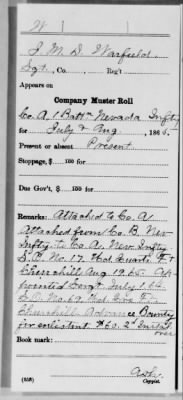 W
J. M. D. Warfield
Sgt., Co. , Reg't
Appears on
Company Muster Roll
Co. A, 1 Batt'n Nevada Inf'ty
for July & Aug, 1865.
Present or absent Present
Stoppage, $ 100 for
Due Gov't, $ 100 for
Remarks: Attached to Co. A
Attached from Co. B, Nev
Infty to Co. A, Nev. Infty
S.O. No. 17. Hd Quarts Ft
Churchill Aug 19. 65. Ap-
pointed Sergt July 1. 64.
S.O. No. 69. Hd. Ft.
Churchill Advance Bounty
for enlistment $60. 2d Instal
over
Book mark:
(358)
Copyist.